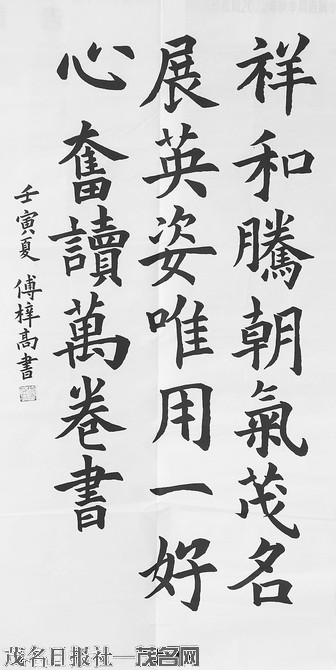 祥和騰朝氣茂名
展英姿唯用一好
心奮讀萬卷書
壬寅夏 傅梓高書
茂名日报社—茂名网